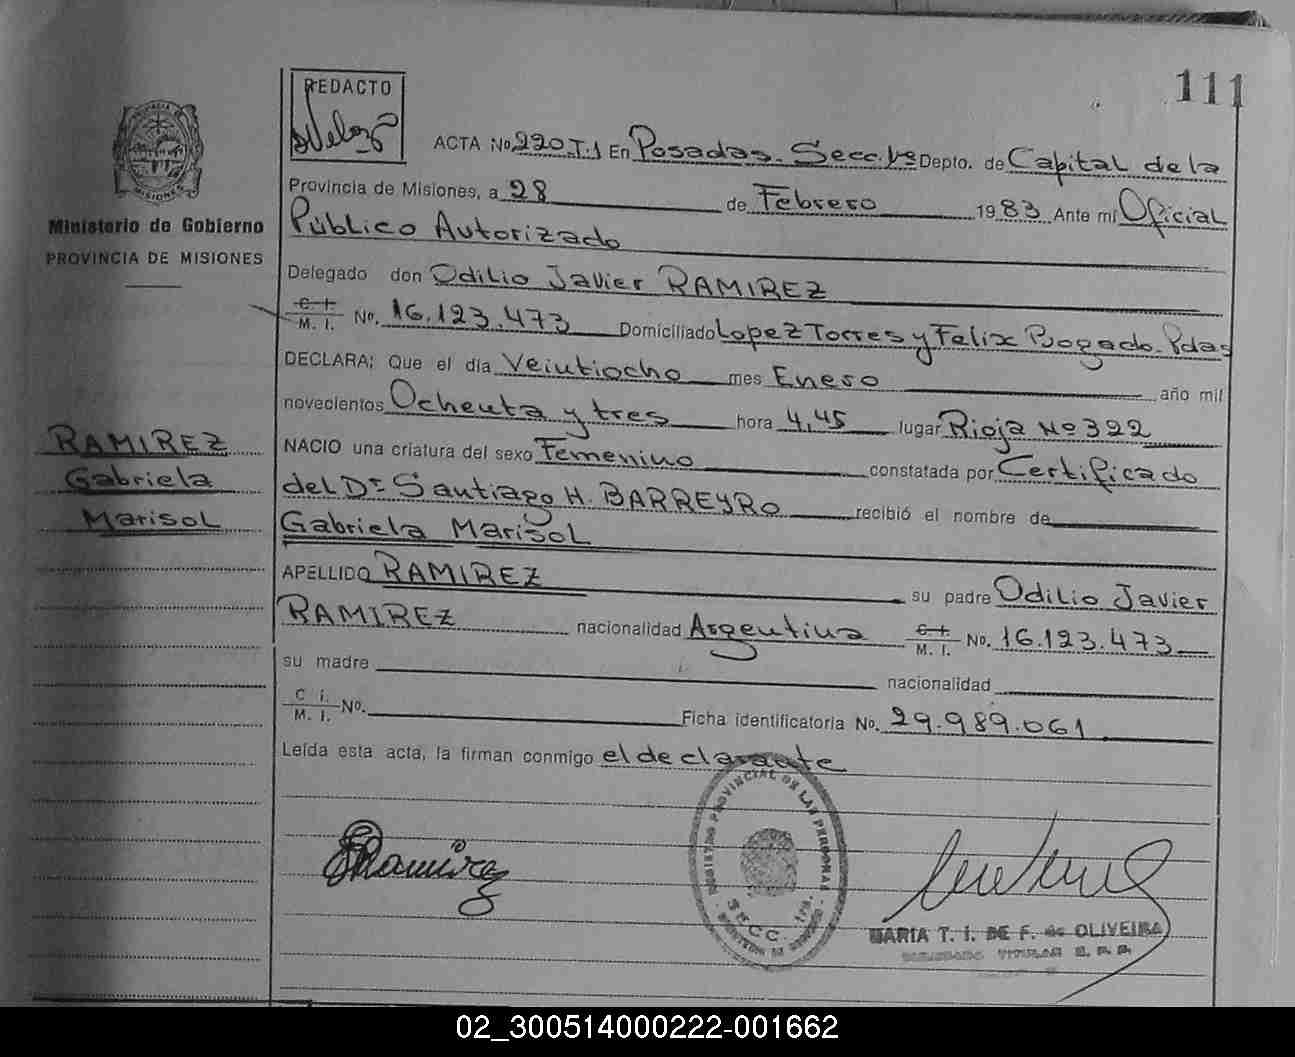 111
REDACTO
ACTA No. 220 T.1 En Posadas. Secc. 1ra Depto. de Capital de la
Provincia de Misiones, a 28 de Febrero 1983 Ante mí Oficial
Público Autorizado
Delegado don Odilio Javier RAMIREZ
C. I.
M. I. No. 16.123.473 Domiciliado Lopez Torres y Felix Bogado. Pdas
DECLARA; Que el día Veintiocho mes Enero año mil
novecientos Ochenta y tres hora 4,45 lugar Rioja Nº 322
NACIO una criatura del sexo Femenino constatada por Certificado
del Dr. Santiago H. BARREYRO recibió el nombre de
Gabriela Marisol
APELLIDO RAMIREZ su padre Odilio Javier
RAMIREZ nacionalidad Argentina C. I.
M. I. No. 16.123.473
su madre nacionalidad
C. I.
M. I. No. Ficha identificatoria No. 29.989.061
Leída esta acta, la firman conmigo el declarante
Ministerio de Gobierno
PROVINCIA DE MISIONES
RAMIREZ
Gabriela
Marisol
Ramirez
REGISTRO PROVINCIAL DE LAS PERSONAS
SECC. 1ra.
MARIA T. I. DE F. de OLIVEIRA
DELEGADO TITULAR R. P. P.
02_300514000222-001662